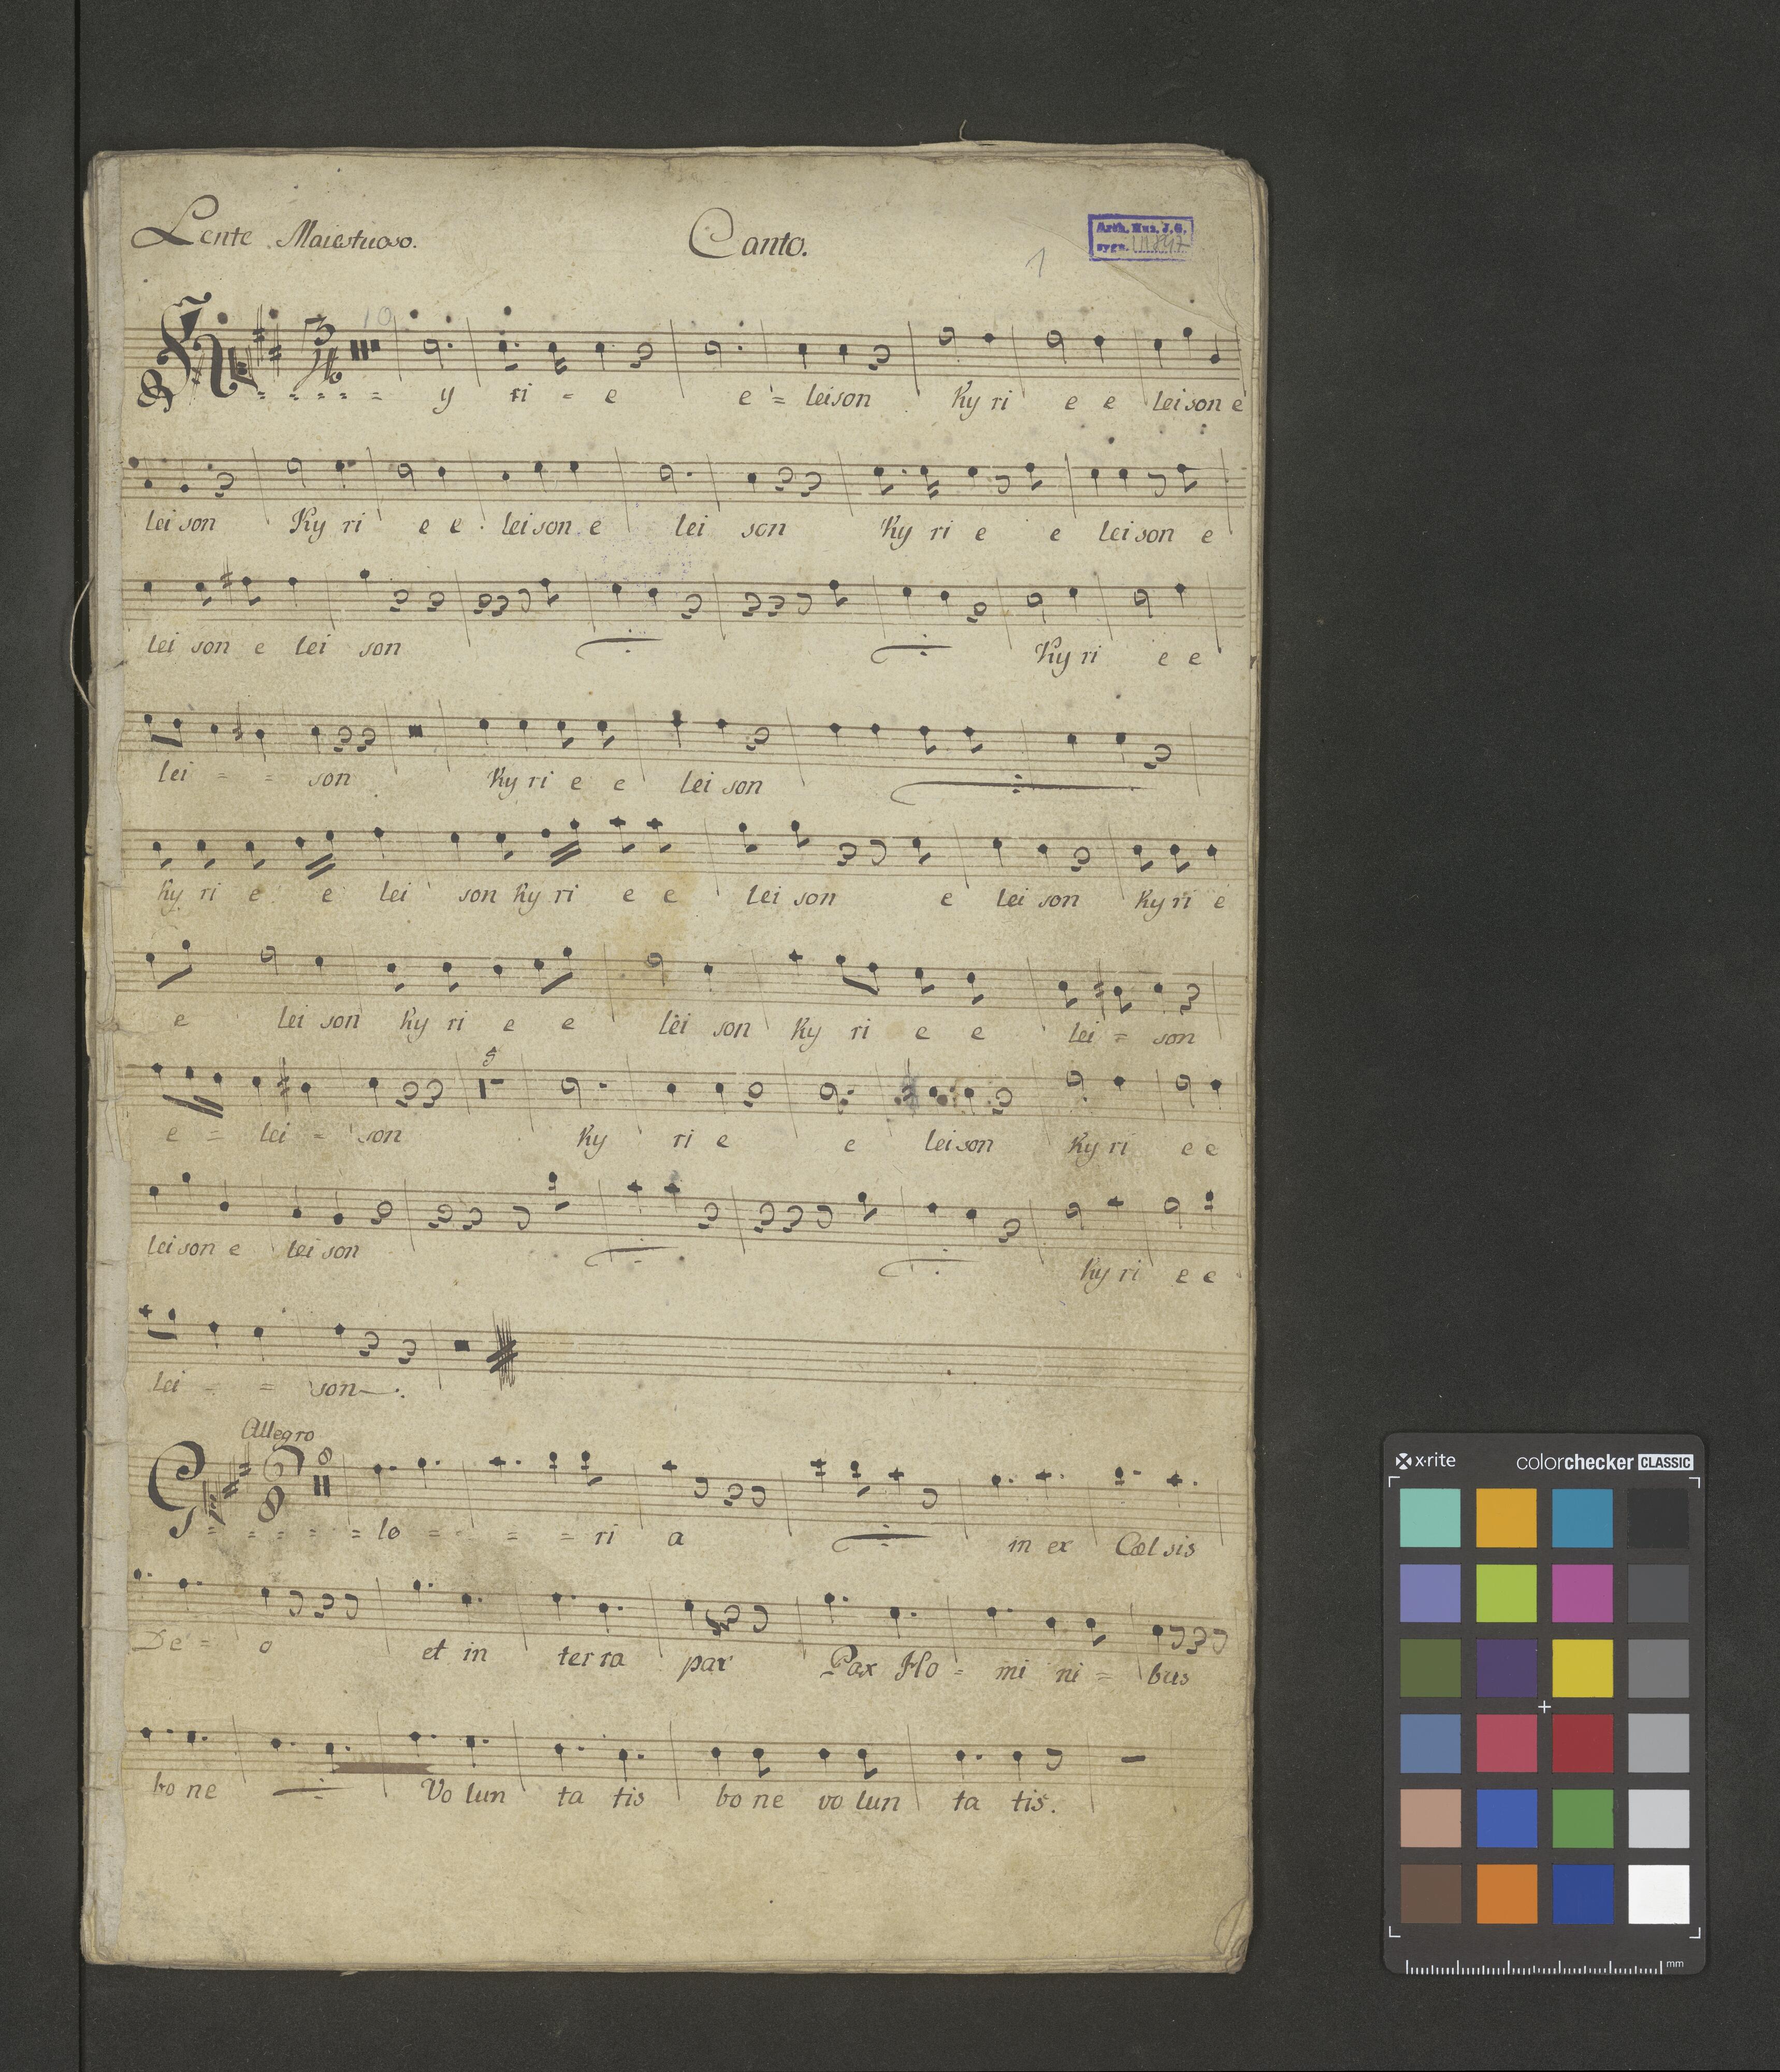 Lente Maiestuoso. Canto.
Arch. Muz. J. G.
sygn.
1
10
K y ri = e e = leison Ky ri e e leison e
lei son Ky ri e e leison e lei son Ky ri e e leison e
lei son e lei son Ky ri e e
lei = = son Ky ri e e lei son
Ky ri e e lei son Ky ri e e lei son e lei son Ky ri e
e lei son Ky ri e e lei son Ky ri e e lei = son
5
e = lei = son Ky ri e e leison Ky ri e e
lei son e lei son Ky ri e e
lei = = son
Allegro
6 8
8
G = = = = = lo = = = = ri a in ex Cœl sis
De = o et in ter ra pax Pax Ho = mi ni = bus
bo ne Vo lun ta tis bo ne vo lun ta tis.
x·rite colorchecker CLASSIC
mm